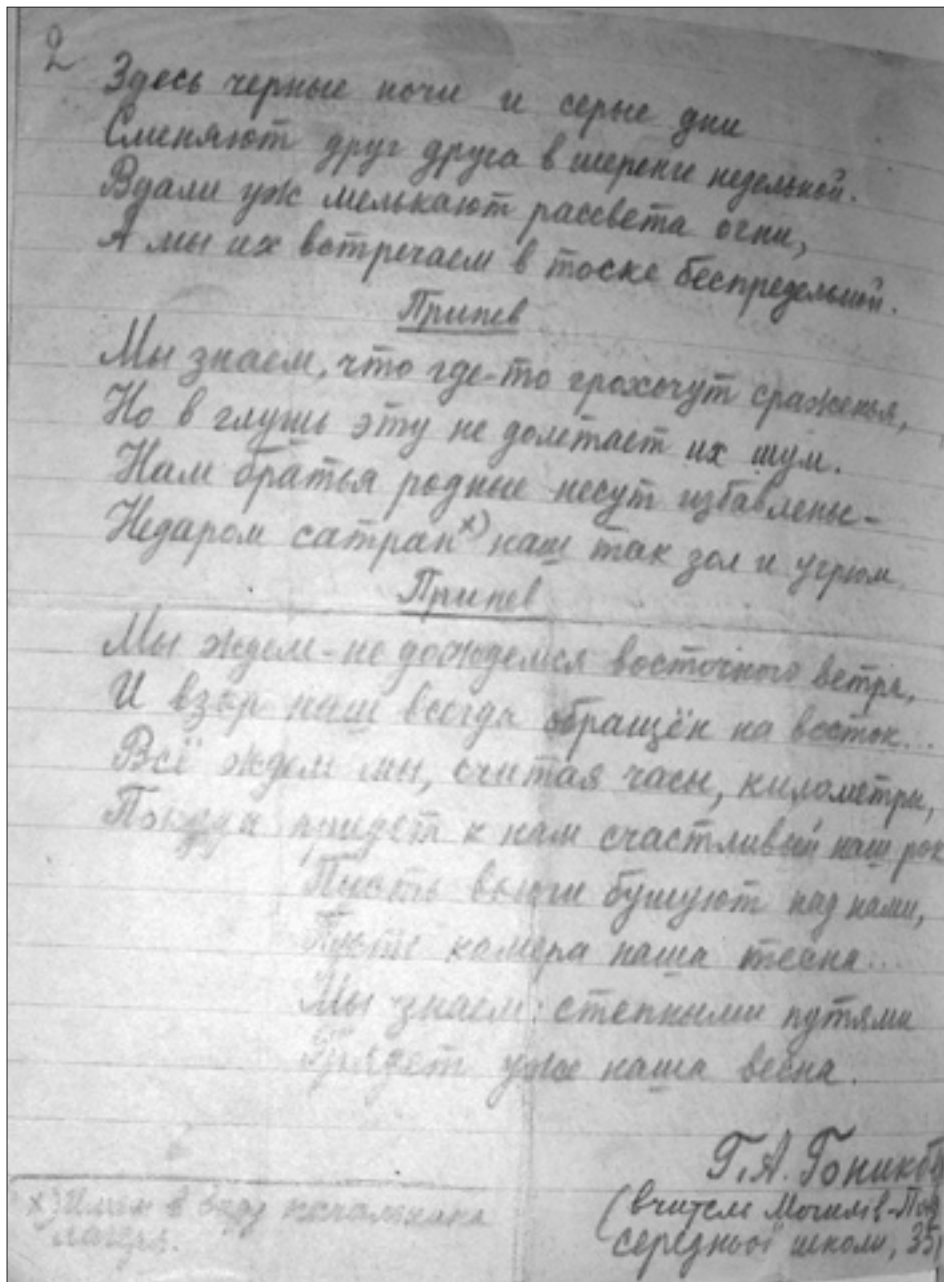 2
Здесь черные ночи и серые дни
Сменяют друг друга в шеренге недельной.
Вдали уж мелькают рассвета огни,
А мы их встречаем в тоске беспредельной.
Припев
Мы знаем, что где-то грохочут сраженья,
Но в глушь эту не долетает их шум.
Нам братья родные несут избавленье-
Недаром сатрап х) наш так зол и угрюм.
Припев
Мы ждем-не дождемся восточного ветра,
И взор наш всегда обращён на восток...
Всё ждем мы, считая часы, километры,
Покуда придет к нам счастливый наш рок
Пусть вьюги бушуют над нами,
Пусть камера наша тесна...
Мы знаем: степными путями
Грядет уже наша весна.
Г.А.
(вчитель Могилів-
середньої школи, 35
х) Имею в виду начальника
лагеря.